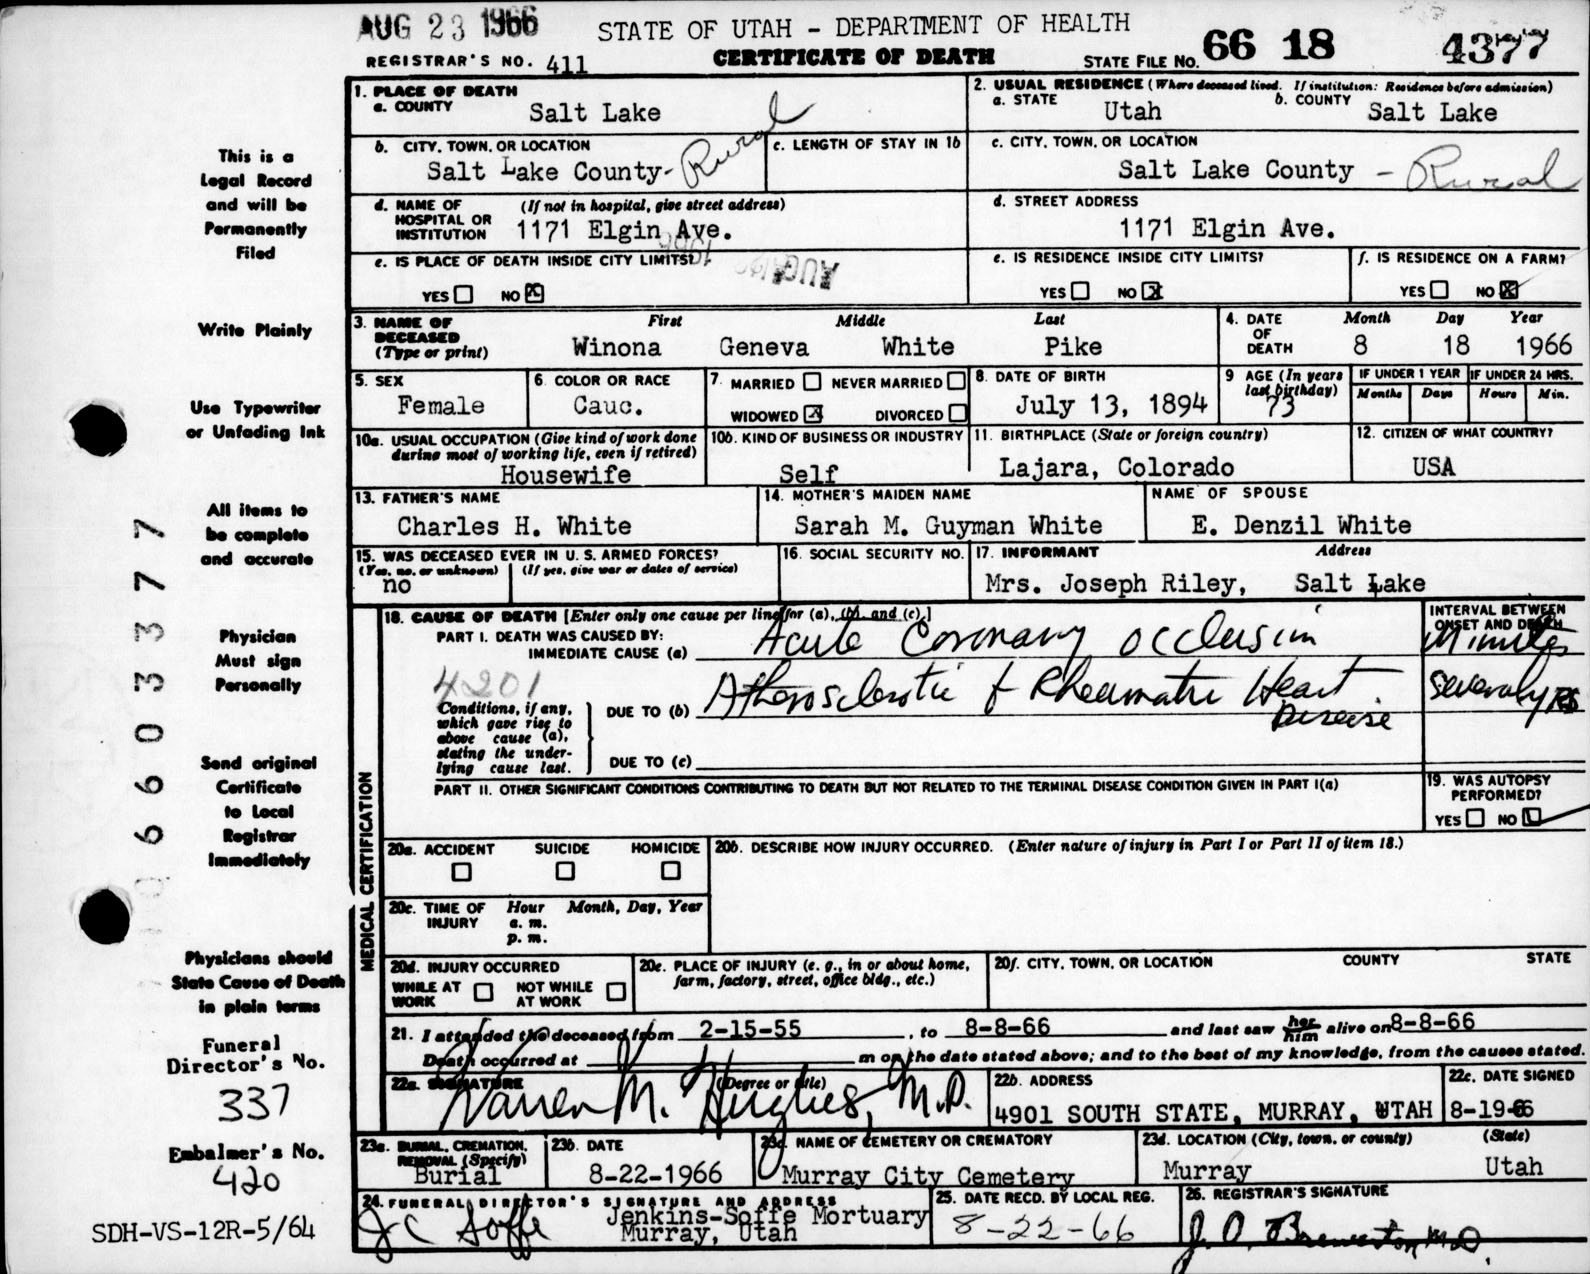 AUG 23 1966
STATE OF UTAH - DEPARTMENT OF HEALTH
REGISTRAR'S NO. 411
CERTIFICATE OF DEATH
STATE FILE NO. 66 18 4377
1. PLACE OF DEATH
a. COUNTY Salt Lake
2. USUAL RESIDENCE (Where deceased lived. If institution: Residence before admission)
a. STATE Utah b. COUNTY Salt Lake
b. CITY, TOWN, OR LOCATION
Salt Lake County- Rural
c. LENGTH OF STAY IN 1b
c. CITY, TOWN, OR LOCATION
Salt Lake County - Rural
d. NAME OF HOSPITAL OR INSTITUTION (If not in hospital, give street address)
1171 Elgin Ave.
d. STREET ADDRESS
1171 Elgin Ave.
e. IS PLACE OF DEATH INSIDE CITY LIMITS?
YES NO X
e. IS RESIDENCE INSIDE CITY LIMITS?
YES NO X
f. IS RESIDENCE ON A FARM?
YES NO X
3. NAME OF DECEASED (Type or print)
First Middle Last
Winona Geneva White Pike
4. DATE OF DEATH Month Day Year
8 18 1966
5. SEX
Female
6. COLOR OR RACE
Cauc.
7. MARRIED NEVER MARRIED
WIDOWED X DIVORCED
8. DATE OF BIRTH
July 13, 1894
9 AGE (In years last birthday)
73
IF UNDER 1 YEAR IF UNDER 24 HRS.
Months Days Hours Min.
10a. USUAL OCCUPATION (Give kind of work done during most of working life, even if retired)
Housewife
10b. KIND OF BUSINESS OR INDUSTRY
Self
11. BIRTHPLACE (State or foreign country)
Lajara, Colorado
12. CITIZEN OF WHAT COUNTRY?
USA
13. FATHER'S NAME
Charles H. White
14. MOTHER'S MAIDEN NAME
Sarah M. Guyman White
NAME OF SPOUSE
E. Denzil White
15. WAS DECEASED EVER IN U. S. ARMED FORCES?
(Yes, no, or unknown) (If yes, give war or dates of service)
no
16. SOCIAL SECURITY NO.
17. INFORMANT Address
Mrs. Joseph Riley, Salt Lake
MEDICAL CERTIFICATION
18. CAUSE OF DEATH [Enter only one cause per line for (a), (b), and (c).]
PART I. DEATH WAS CAUSED BY:
IMMEDIATE CAUSE (a) Acute Coronary occlusion
INTERVAL BETWEEN ONSET AND DEATH
Minutes
4201
Conditions, if any, which gave rise to above cause (a), stating the underlying cause last.
DUE TO (b) Atherosclerotic & Rheumatic Heart Disease
Several yrs
DUE TO (c)
PART II. OTHER SIGNIFICANT CONDITIONS CONTRIBUTING TO DEATH BUT NOT RELATED TO THE TERMINAL DISEASE CONDITION GIVEN IN PART I(a)
19. WAS AUTOPSY PERFORMED?
YES NO
20a. ACCIDENT SUICIDE HOMICIDE
20b. DESCRIBE HOW INJURY OCCURRED. (Enter nature of injury in Part I or Part II of item 18.)
20c. TIME OF INJURY Hour Month, Day, Year
a. m.
p. m.
20d. INJURY OCCURRED
WHILE AT WORK NOT WHILE AT WORK
20e. PLACE OF INJURY (e. g., in or about home, farm, factory, street, office bldg., etc.)
20f. CITY, TOWN, OR LOCATION COUNTY STATE
21. I attended the deceased from 2-15-55, to 8-8-66 and last saw her him alive on 8-8-66
Death occurred at m on the date stated above; and to the best of my knowledge, from the causes stated.
22a. SIGNATURE (Degree or title)
Warren M. Hughes, M.D.
22b. ADDRESS
4901 SOUTH STATE, MURRAY, UTAH
22c. DATE SIGNED
8-19-66
23a. BURIAL, CREMATION, REMOVAL (Specify)
Burial
23b. DATE
8-22-1966
23c. NAME OF CEMETERY OR CREMATORY
Murray City Cemetery
23d. LOCATION (City, town, or county) (State)
Murray Utah
24. FUNERAL DIRECTOR'S SIGNATURE AND ADDRESS
J C Soffe Jenkins-Soffe Mortuary
Murray, Utah
25. DATE RECD. BY LOCAL REG.
8-22-66
26. REGISTRAR'S SIGNATURE
J. O. Brewerton MD.
This is a
Legal Record
and will be
Permanently
Filed
Write Plainly
Use Typewriter
or Unfading Ink
All items to
be complete
and accurate
Physician
Must sign
Personally
Send original
Certificate
to Local
Registrar
Immediately
Physicians should
State Cause of Death
in plain terms
Funeral
Director's No.
337
Embalmer's No.
420
SDH-VS-12R-5/64
6603377